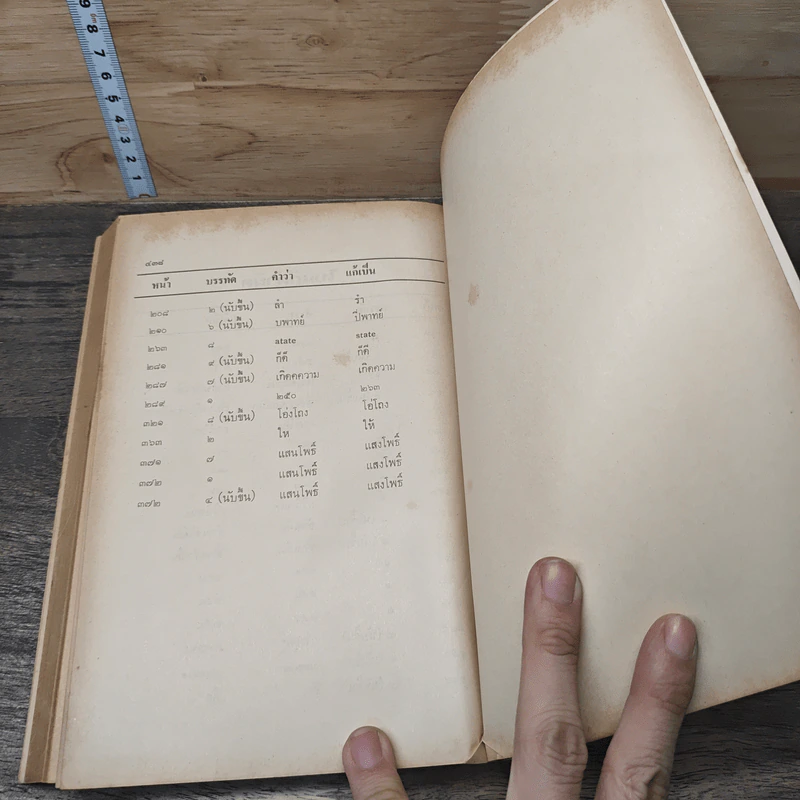 ๔๓๘
หน้า บรรทัด คำว่า แก้เป็น
๒๐๘ ๒ (นับขึ้น) ลำ รำ
๒๑๐ ๖ (นับขึ้น) บพาทย์ ปี่พาทย์
๒๖๓ ๘ atate state
๒๘๑ ๙ (นับขึ้น) ก็ดี ก็ดี
๒๘๗ ๗ (นับขึ้น) เกิดความ เกิดความ
๒๘๙ ๑ ๒๕๐ ๒๖๓
๓๒๑ ๘ (นับขึ้น) โอ่งโถง โอ่โถง
๓๖๓ ๒ ให ให้
๓๗๑ ๗ แสนโพธิ์ แสงโพธิ์
๓๗๒ ๑ แสนโพธิ์ แสงโพธิ์
๓๗๒ ๔ (นับขึ้น) แสนโพธิ์ แสงโพธิ์
9 8 7 6 5 4 3 2 1